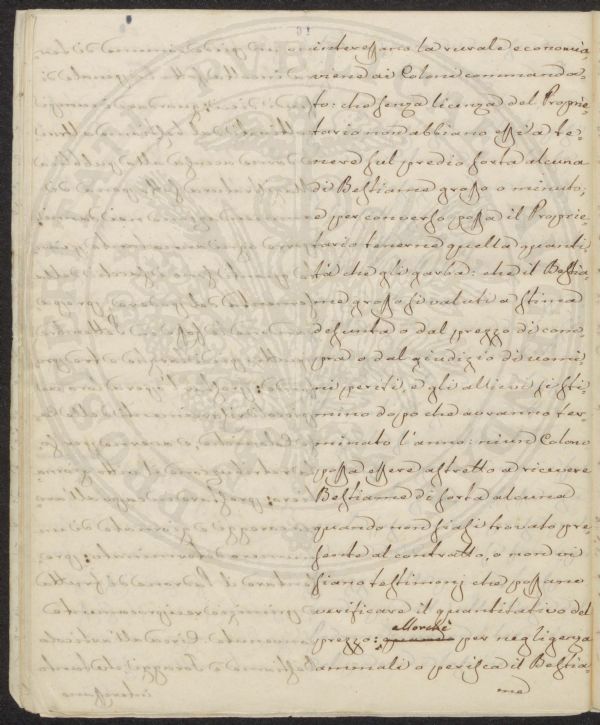 interessano la rurale economia,
viene ai Coloni commanda-
to: che senza licenza del Proprie-
tario non abbiano essi a te-
nere sul predio sorta alcuna
di Bestiame grosso o minuto;
e per converso possa il Proprie-
tario tenerne quella quanti-
tà che gli garba: che il Bestia-
me grosso si valuti a stima
desunta o dal prezzo di com-
pra o dal giudizio di uomi-
ni periti, e gli allievi si sti-
mino dopo che avranno ter-
minato l'anno: niun Colono
possa essere astretto a ricevere
Bestiame di sorta alcuna
quando non siasi trovato pre-
sente al contratto, o non vi
siano testimonj che possano
verificare il quantitativo del
prezzo: allorchè per negligenza
ammali o perisca il Bestia-
me